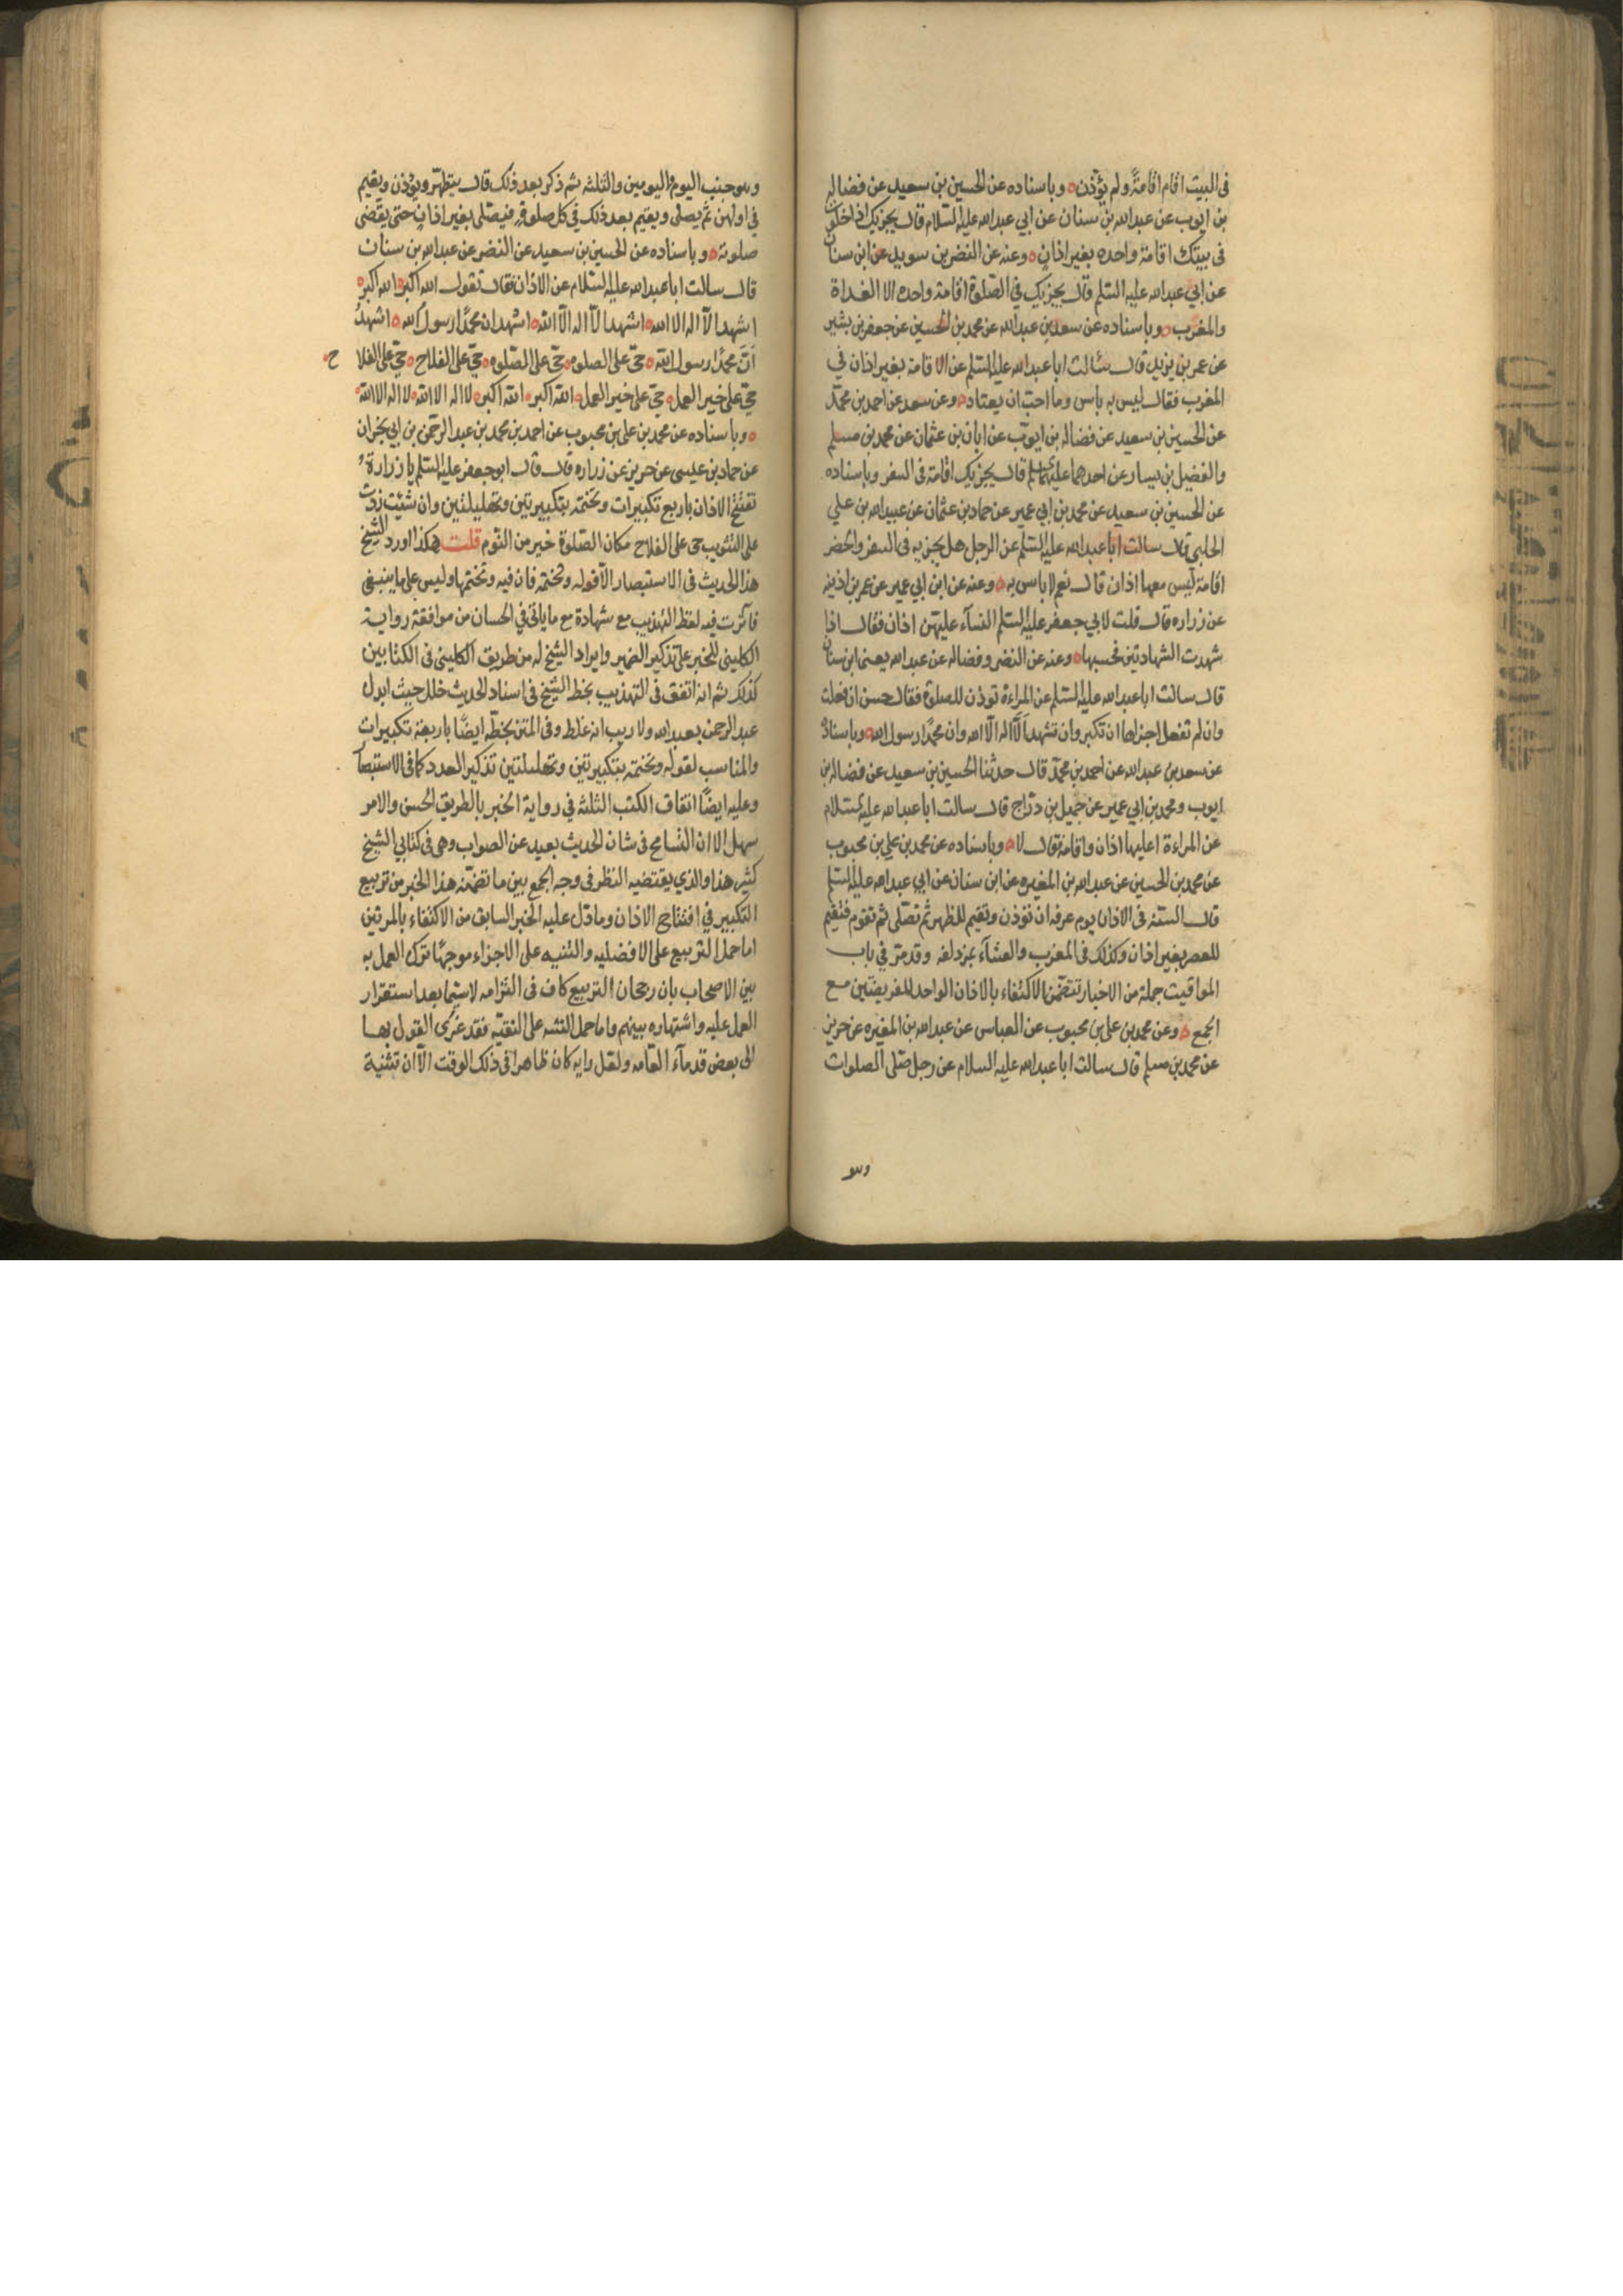 فى البيت اقام اقامةً ولم يؤذّن ه وباسناده عن الحسين بن سعيد عن فضاله
بن ايوب عن عبدالله بن سنان عن ابي عبدالله عليه السّلام قال يجزيك اذا خلوت
فى بيتك اقامة واحده بغير اذانٍ ه وعنه عن النضر بن سويد عن ابن سنان
عن ابي عبدالله عليه السّلم قال يجزيك في الصّلوة اقامة واحده الا الغداة
والمغرب ه وباسناده عن سعد بن عبدالله عن محمد بن الحسين عن جعفر بن بشير
عن عمر بن يزيد قال سئالت ابا عبدالله عليه السّلم عن الاقامة بغير اذان في
المغرب فقال ليس به باس وما احبّ ان يعتاد ه وعن سعد عن احمد بن محمّد
عن الحسين بن سعيد عن فضاله بن ايوّب عن ابان بن عثمان عن محمد بن مسلم
والفضيل بن يسار عن احدهما عليهما السّلم قال يجزيك اقامة فى السفر وباسناده
عن الحسين بن سعيد عن محمد بن ابي عمير عن حماد بن عثمان عن عبيدالله بن علي
الحلبي قال سالت ابا عبدالله عليه السّلم عن الرجل هل يجزيه فى السفر والحضر
اقامة ليس معها اذان قال نعم لا باس به ه وعنه عن ابن ابي عمير عن عمر بن اذينه
عن زراره قال قلت لابي جعفر عليه السّلم النسآء عليهنّ اذان فقال اذا
شهدت الشهادتين فحسبها ه وعنه عن النضر وفضاله عن عبدالله يعنى ابن سنان
قال سالت ابا عبدالله عليه السّلم عن المراءة توذن للصلوة فقال حسن ان فعلت
وان لم تفعل اجزاها ان تكبر وان تشهد اَلّا اله الّا الله وان محمّداً رسول الله ه وباسناده
عن سعد بن عبدالله عن احمد بن محمّد قال حدثنا الحسين بن سعيد عن فضاله بن
ايوب ومحمد بن ابي عمير عن جميل بن درّاج قال سالت ابا عبدالله عليه السّلام
عن المراءة اعليها اذان واقامة فقال لا ه وباسناده عن محمد بن علي بن محبوب
عن محمد بن الحسين عن عبدالله بن المغيره عن ابن سنان عن ابي عبدالله عليه السّلم
قال السنّه فى الاذان يوم عرفه ان توذن وتقيم للظهر ثم تصّلى ثم تقوم فتقيم
للعصر بغير اذان وكذلك فى المغرب والعشآء بمزدلفه وقد مرّ في باب
المواقيت جملة من الاخبار تتضمّن الاكتفاء بالاذان الواحد للفريضتين مع
الجمع ه وعن محمد بن على بن محبوب عن العباس عن عبدالله بن المغيره عن حريز
عن محمد بن مسلم قال سالت ابا عبدالله عليه السلام عن رجل صّلى الصلوات
وهو
وهو جنب اليوم واليومين والثلثه ثم ذكر بعد ذلك قال يتطهّر ويؤذن ويقيم
في اولهن ثم يصلى ويقيم بعد ذلك في كل صلوة فيصّلى بغير اذانٍ حتى يقضى
صلوته ه وباسناده عن الحسين بن سعيد عن النضر عن عبدالله بن سنان
قال سالت ابا عبدالله عليه السّلام عن الاذان فقال تقول الله اكبر ه الله اكبر ه
اشهد الّا اله الا الله ه اشهد الّا اله الّا الله ه اشهد ان محمّداً رسول الله ه اشهدُ
اَنّ محمّداً رسول الله ه حيّ على الصلوه ه حيّ على الصّلوه ه حيّ على الفلاح ه حيّ على الفلاح ه
حيّ على خير العمل ه حيّ على خير العمل ه الله اكبر ه الله اكبر ه لا اله الا الله ه لا اله الا الله ه
ه وباسناده عن محمد بن على بن محبوب عن احمد بن محمد بن عبد الرحّمن بن ابي نجران
عن حماد بن عيسى عن حريز عن زراره قال قال ابو جعفر عليه السّلم يا زرارة
تفتتح الاذان باربع تكبيرات وتختمه بتكبيرتين وتهليلتين وان شئت زدت
على التثويب حى على الفلاح مكان الصّلوة خير من النّوم قلت هكذا اورد الشيخ
هذا الحديث فى الاستبصار الّا قوله وتختمه فان فيه وتختمها وليس على ما ينبغى
فآثرت فيه لفظ التهذيب مع شهادة مع ما ياتى في الحسان من موافقة رواية
الكلينى للخبر على تذكير الضمير وايراد الشيخ له من طريق الكلينى فى الكتابين
كذلك ثم انه اتفق فى التهذيب بخط الشيخ فى اسناد الحديث خلل حيث ابدل
عبد الرحمن بعبدالله ولا ريب انه غلط وفى المتن بخطّه ايضًا باربعة تكبيرات
والمناسب لقوله وتختمه بتكبيرتين وتهليلتين تذكير العدد كما فى الاستبصار
وعليه ايضًا اتفاق الكتب الثلثه في رواية الخبر بالطريق الحسن والامر
سهل الا ان التسامح فى شان الحديث بعيد عن الصواب وهى فى كتابي الشيخ
كثير هذا والذي يقتضيه النظر فى وجه الجمع بين ما تضمّنه هذا الخبر من تربيع
التكبير في افتتاح الاذان وما دّل عليه الخبر السابق من الاكتفاء بالمرتين
اما حمل التربيع على الافضليه والتثنيه على الاجزاء موجهًا ترك العمل به
بين الاصحاب بان رجحان التربيع كاف فى التزامه لا سيّما بعد استقرار
العمل عليه واشتهاره بينهم واما حمل التثنيه على التقيّه فقد عُزى القول بها
الى بعض قدمآء العّامه ولعّل رايه كان ظاهرا فى ذلك الوقت الّا ان تثنية